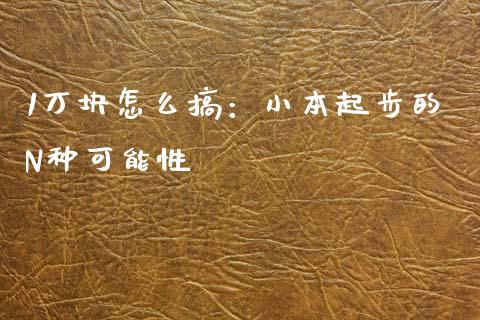 1万块怎么搞：小本起步的
N种可能性